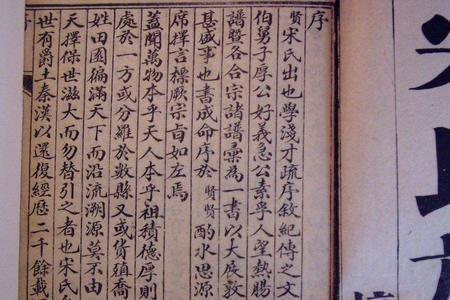 序
賢宋氏出也學淺才疏序敘紀傳之文
伯舅子厚公好義急公素孚人望熱腸
譜股各合宗諸譜彙為一書以大展敦
甚盛事也書成命序於賢賢酌水思源
席擇言標厥宗旨如左焉
蓋聞萬物本乎天人本乎祖積德厚則
處於一方或分離於數縣又或貨殖喬
姓田園徧滿天下而沿流溯源莫不由
天擇保世滋大而勿替引之者也宋氏
世有爵土秦漢以還復經歷二千餘載